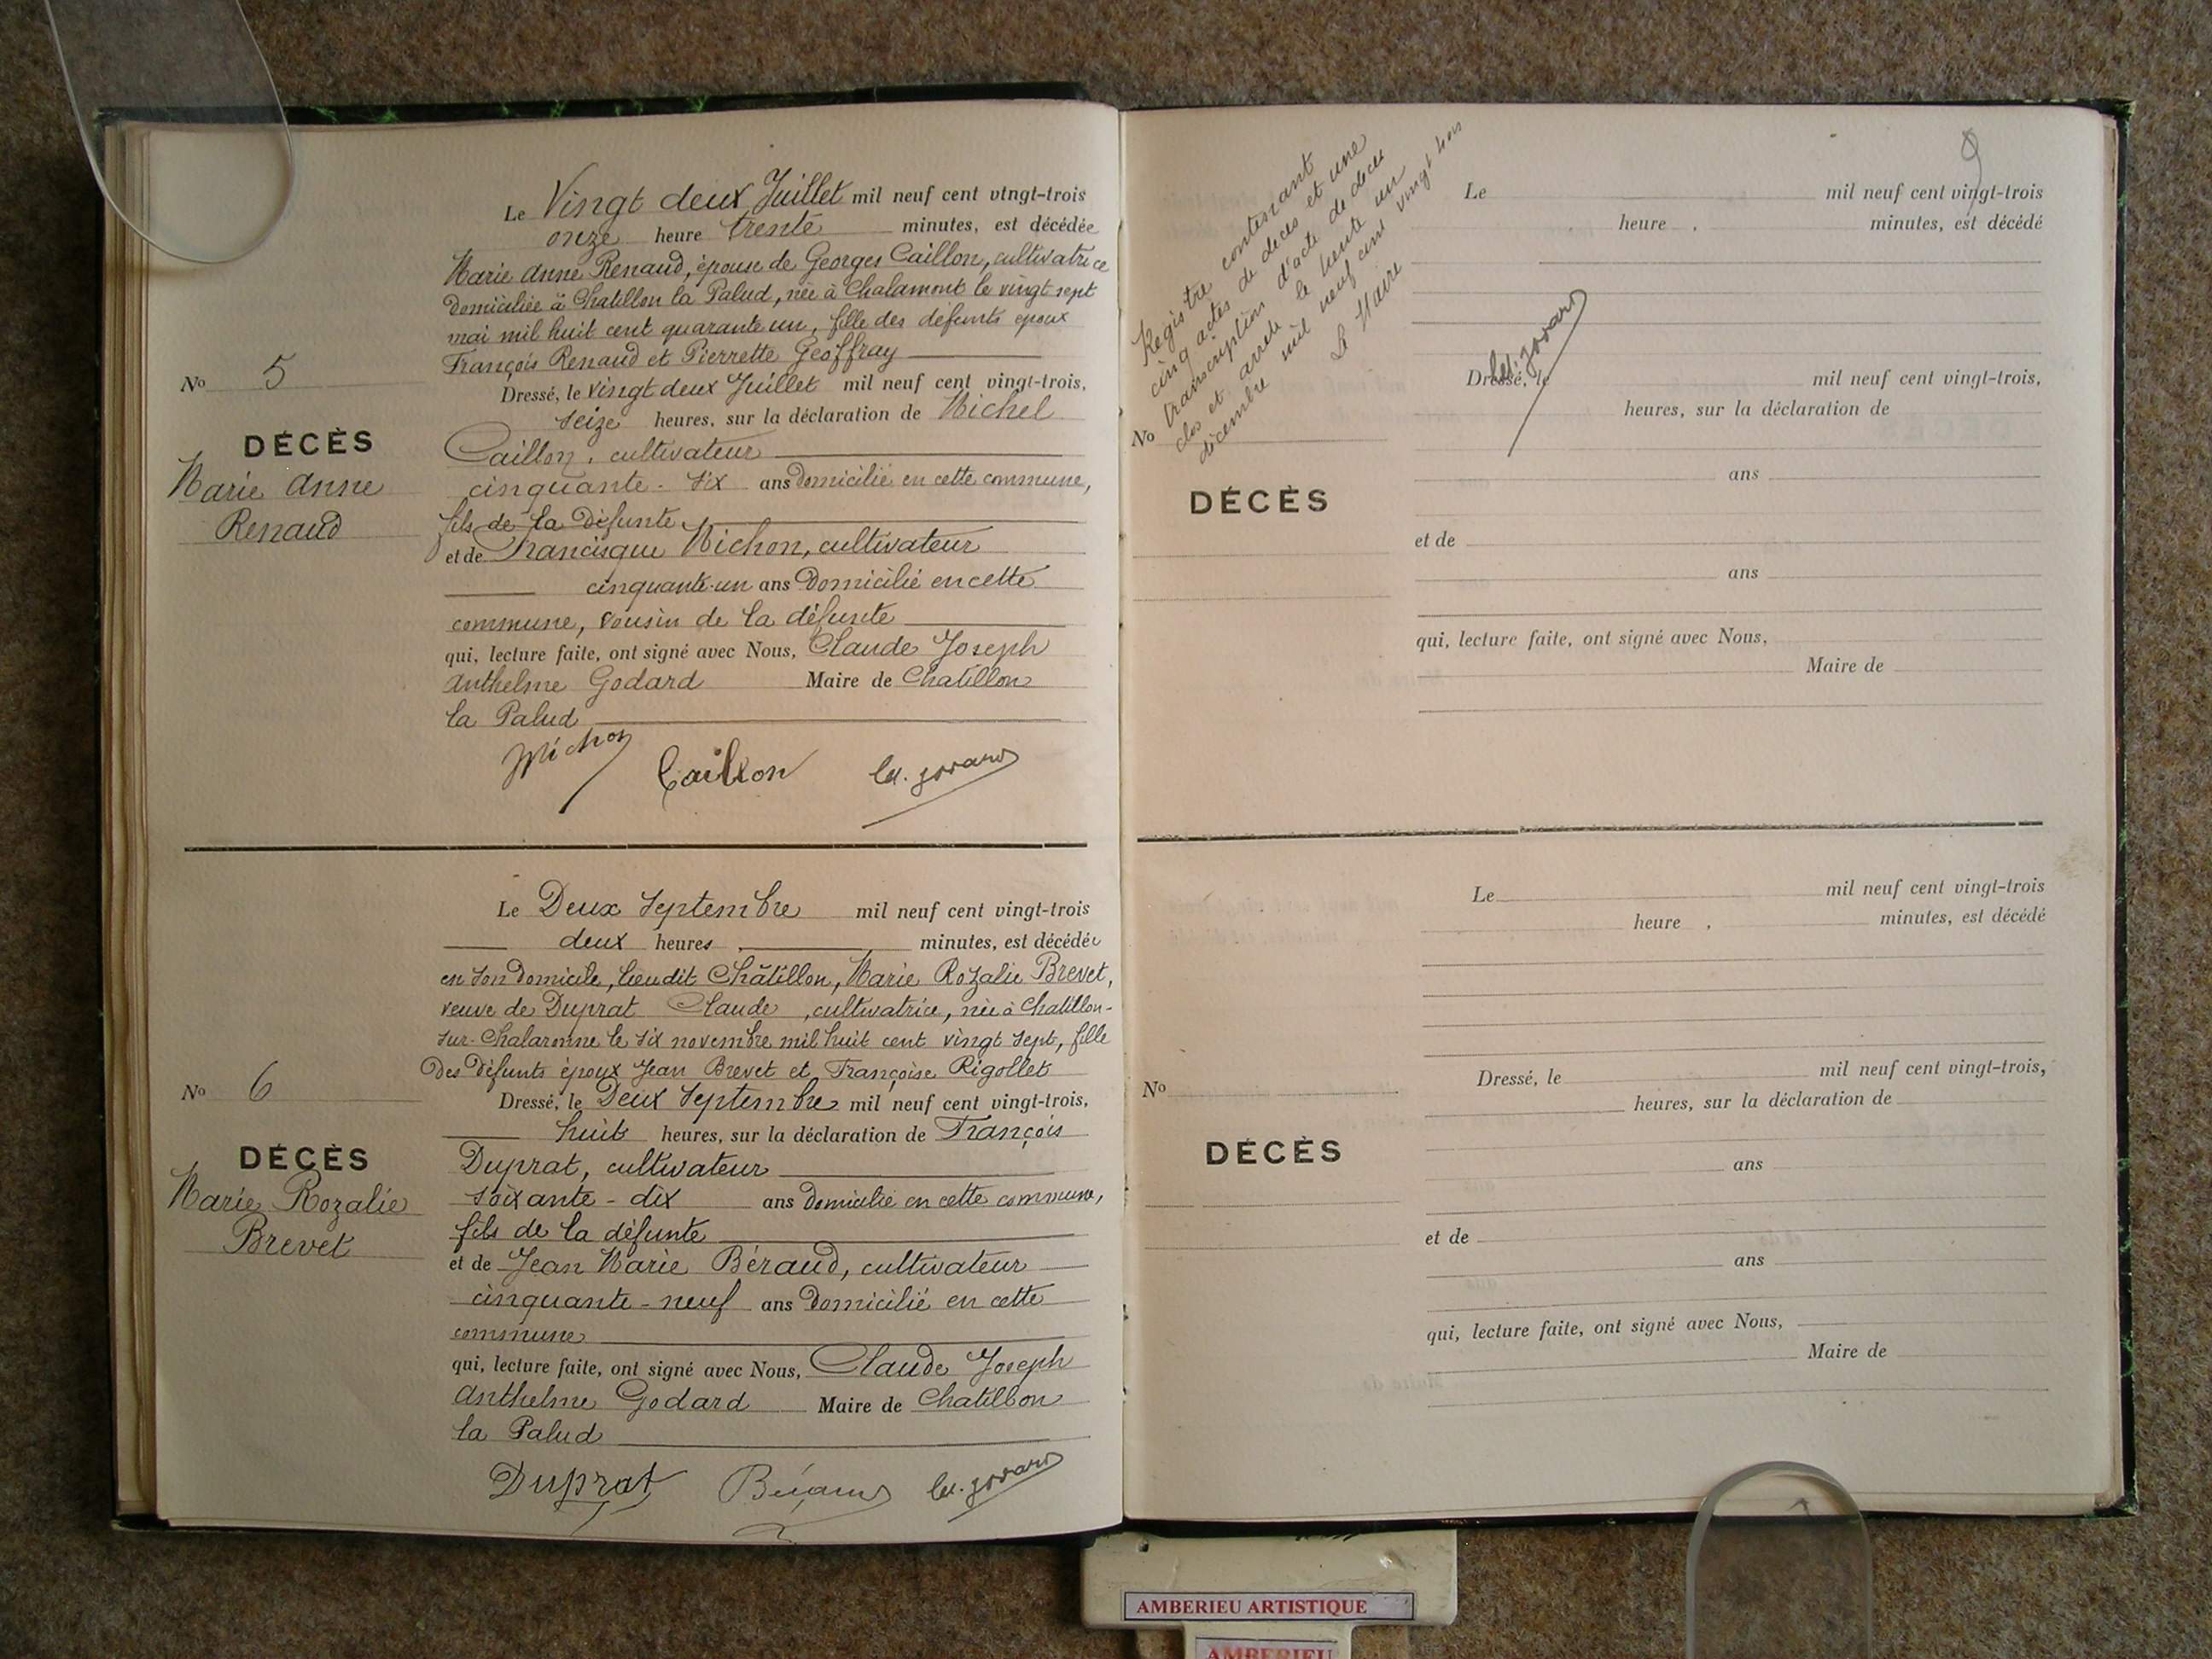 Le Vingt deux Juillet mil neuf cent vingt-trois
onze heure trente minutes, est décédée
Marie Anne Renaud, épouse de Georges Caillon, cultivatrice
domiciliée à Chatillon la Palud, née à Chalamont le vingt sept
mai mil huit cent quarante un, fille des défunts époux
François Renaud et Pierrette Geoffray
Dressé, le vingt deux Juillet mil neuf cent vingt-trois,
seize heures, sur la déclaration de Michel
Caillon, cultivateur
cinquante-six ans domicilié en cette commune,
fils de la défunte
et de Francisque Michon, cultivateur
cinquante-un ans domicilié en cette
commune, cousin de la défunte
qui, lecture faite, ont signé avec Nous, Claude Joseph
Anthelme Godard Maire de Chatillon
la Palud
Michon Caillon
No 5
DÉCÈS
Marie Anne
Renaud
Le Deux Septembre mil neuf cent vingt-trois
deux heures minutes, est décédée
en son domicile, lieu dit Châtillon, Marie Rozalie Brevet,
veuve de Duprat Claude, cultivatrice, née à Chatillon-
sur-Chalaronne le six novembre mil huit cent vingt sept, fille
des défunts époux Jean Brevet et Françoise Rigollet
Dressé, le Deux Septembre mil neuf cent vingt-trois,
huit heures, sur la déclaration de François
Duprat, cultivateur
soixante-dix ans domicilié en cette commune,
fils de la défunte
et de Jean Marie Béraud, cultivateur
cinquante-neuf ans domicilié en cette
commune
qui, lecture faite, ont signé avec Nous, Claude Joseph
Anthelme Godard Maire de Chatillon
la Palud
Duprat Béraud
No 6
DÉCÈS
Marie Rozalie
Brevet
Registre contenant
cinq actes de décès et une
transcription d'acte de décès
clos et arrêté le trente un
décembre mil neuf cent vingt trois
Le Maire
9
Le mil neuf cent vingt-trois
heure minutes, est décédé
Dressé, le mil neuf cent vingt-trois,
heures, sur la déclaration de
No
DÉCÈS
ans
et de
ans
qui, lecture faite, ont signé avec Nous,
Maire de
Le mil neuf cent vingt-trois
heure , minutes, est décédé
Dressé, le mil neuf cent vingt-trois,
heures, sur la déclaration de
No
DÉCÈS
ans
et de
ans
qui, lecture faite, ont signé avec Nous,
Maire de
AMBERIEU ARTISTIQUE
AMBERIEU